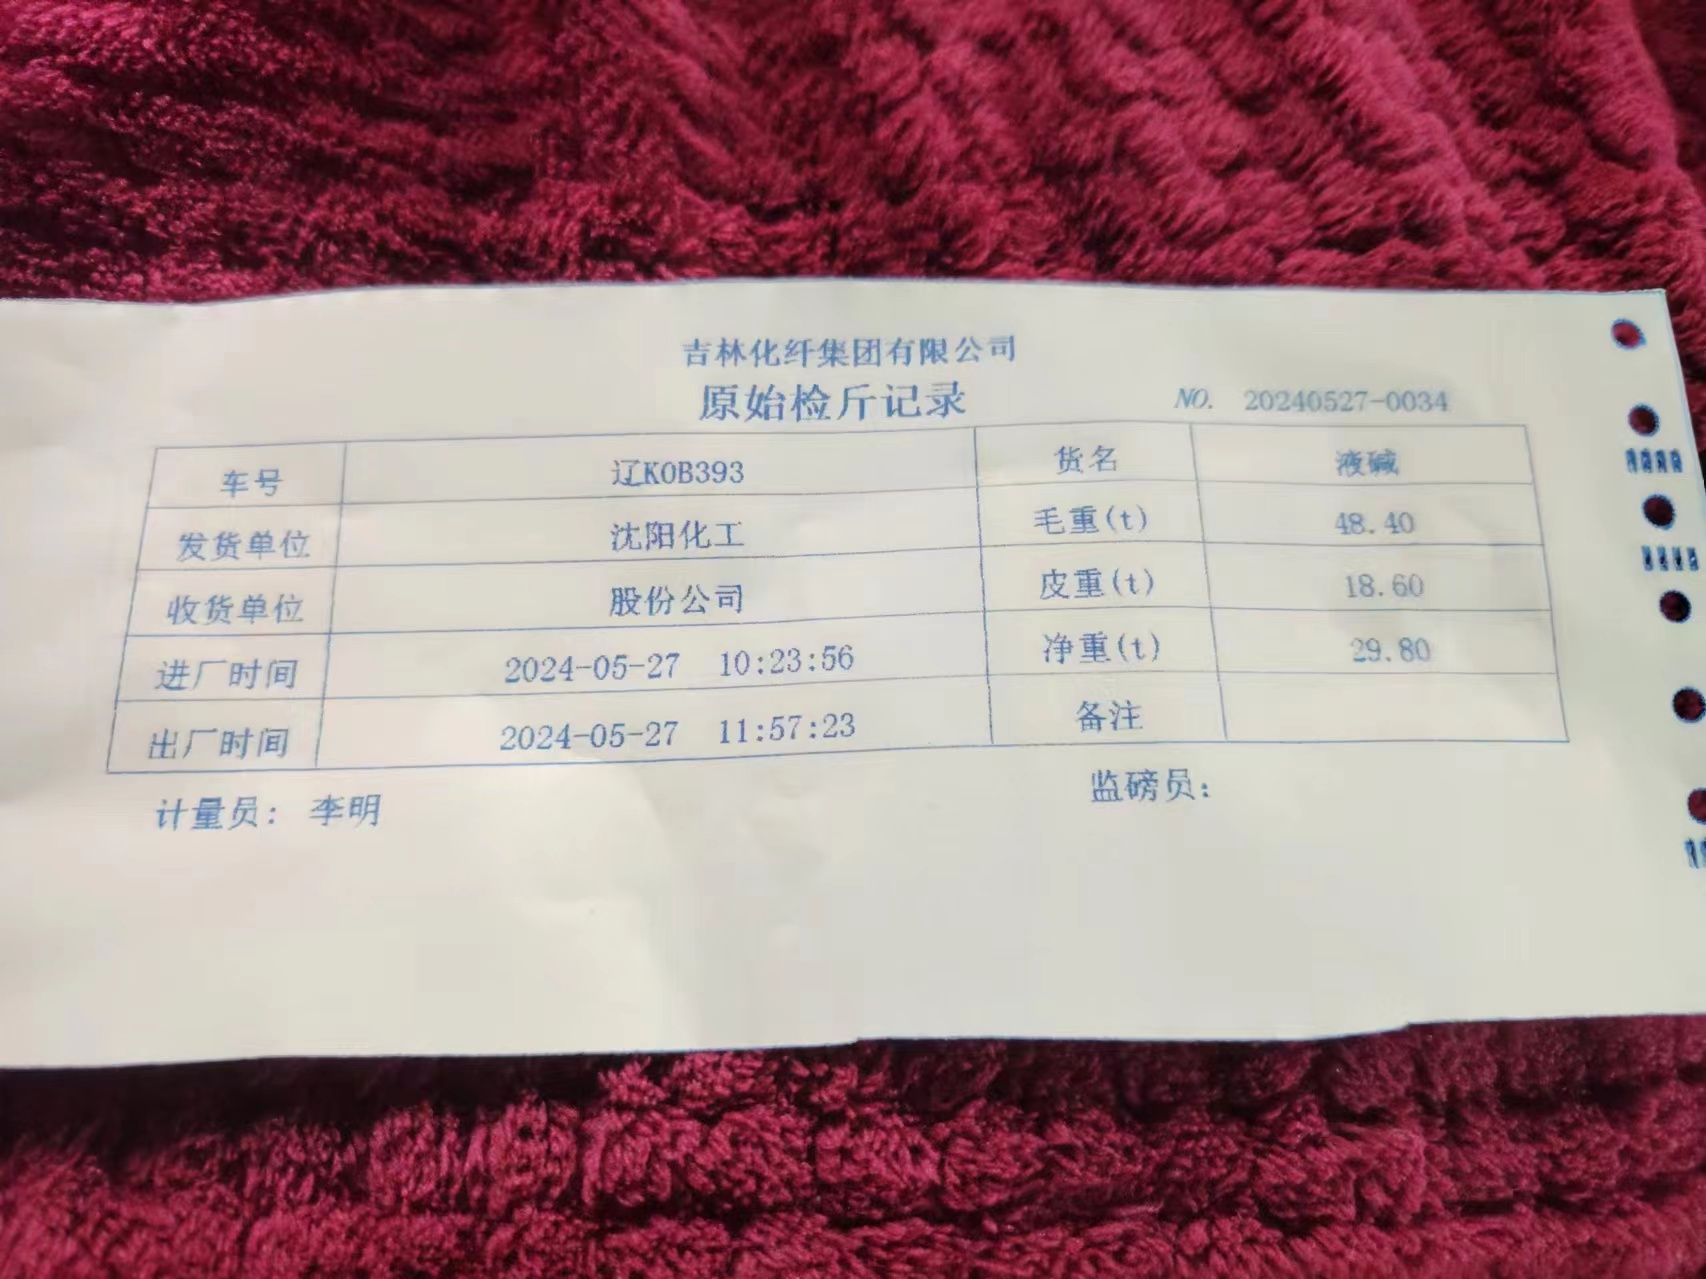 吉林化纤集团有限公司
原始检斤记录 NO. 20240527-0034
车号 辽K0B393 货名 液碱
发货单位 沈阳化工 毛重(t) 48.40
收货单位 股份公司 皮重(t) 18.60
进厂时间 2024-05-27 10:23:56 净重(t) 29.80
出厂时间 2024-05-27 11:57:23 备注
计量员: 李明 监磅员: